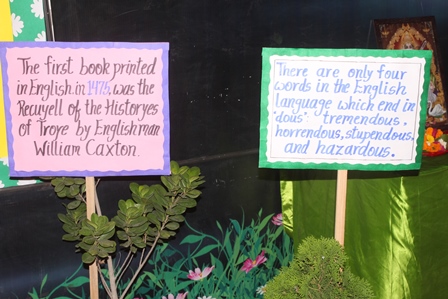 The first book printed
in English, in 1475, was the
Recuyell of the Historyes
of Troye by Englishman
William Caxton.
There are only four
words in the English
language which end in
'dous': tremendous,
horrendous, stupendous,
and hazardous.